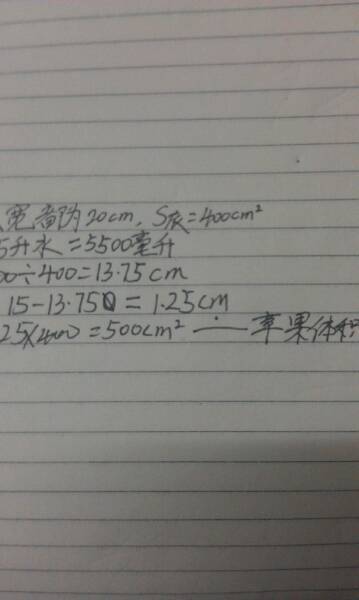 宽都为20cm, S底=400cm²
5升水=5500毫升
00÷400=13.75cm
15-13.750=1.25cm
25×400=500cm²——苹果体积